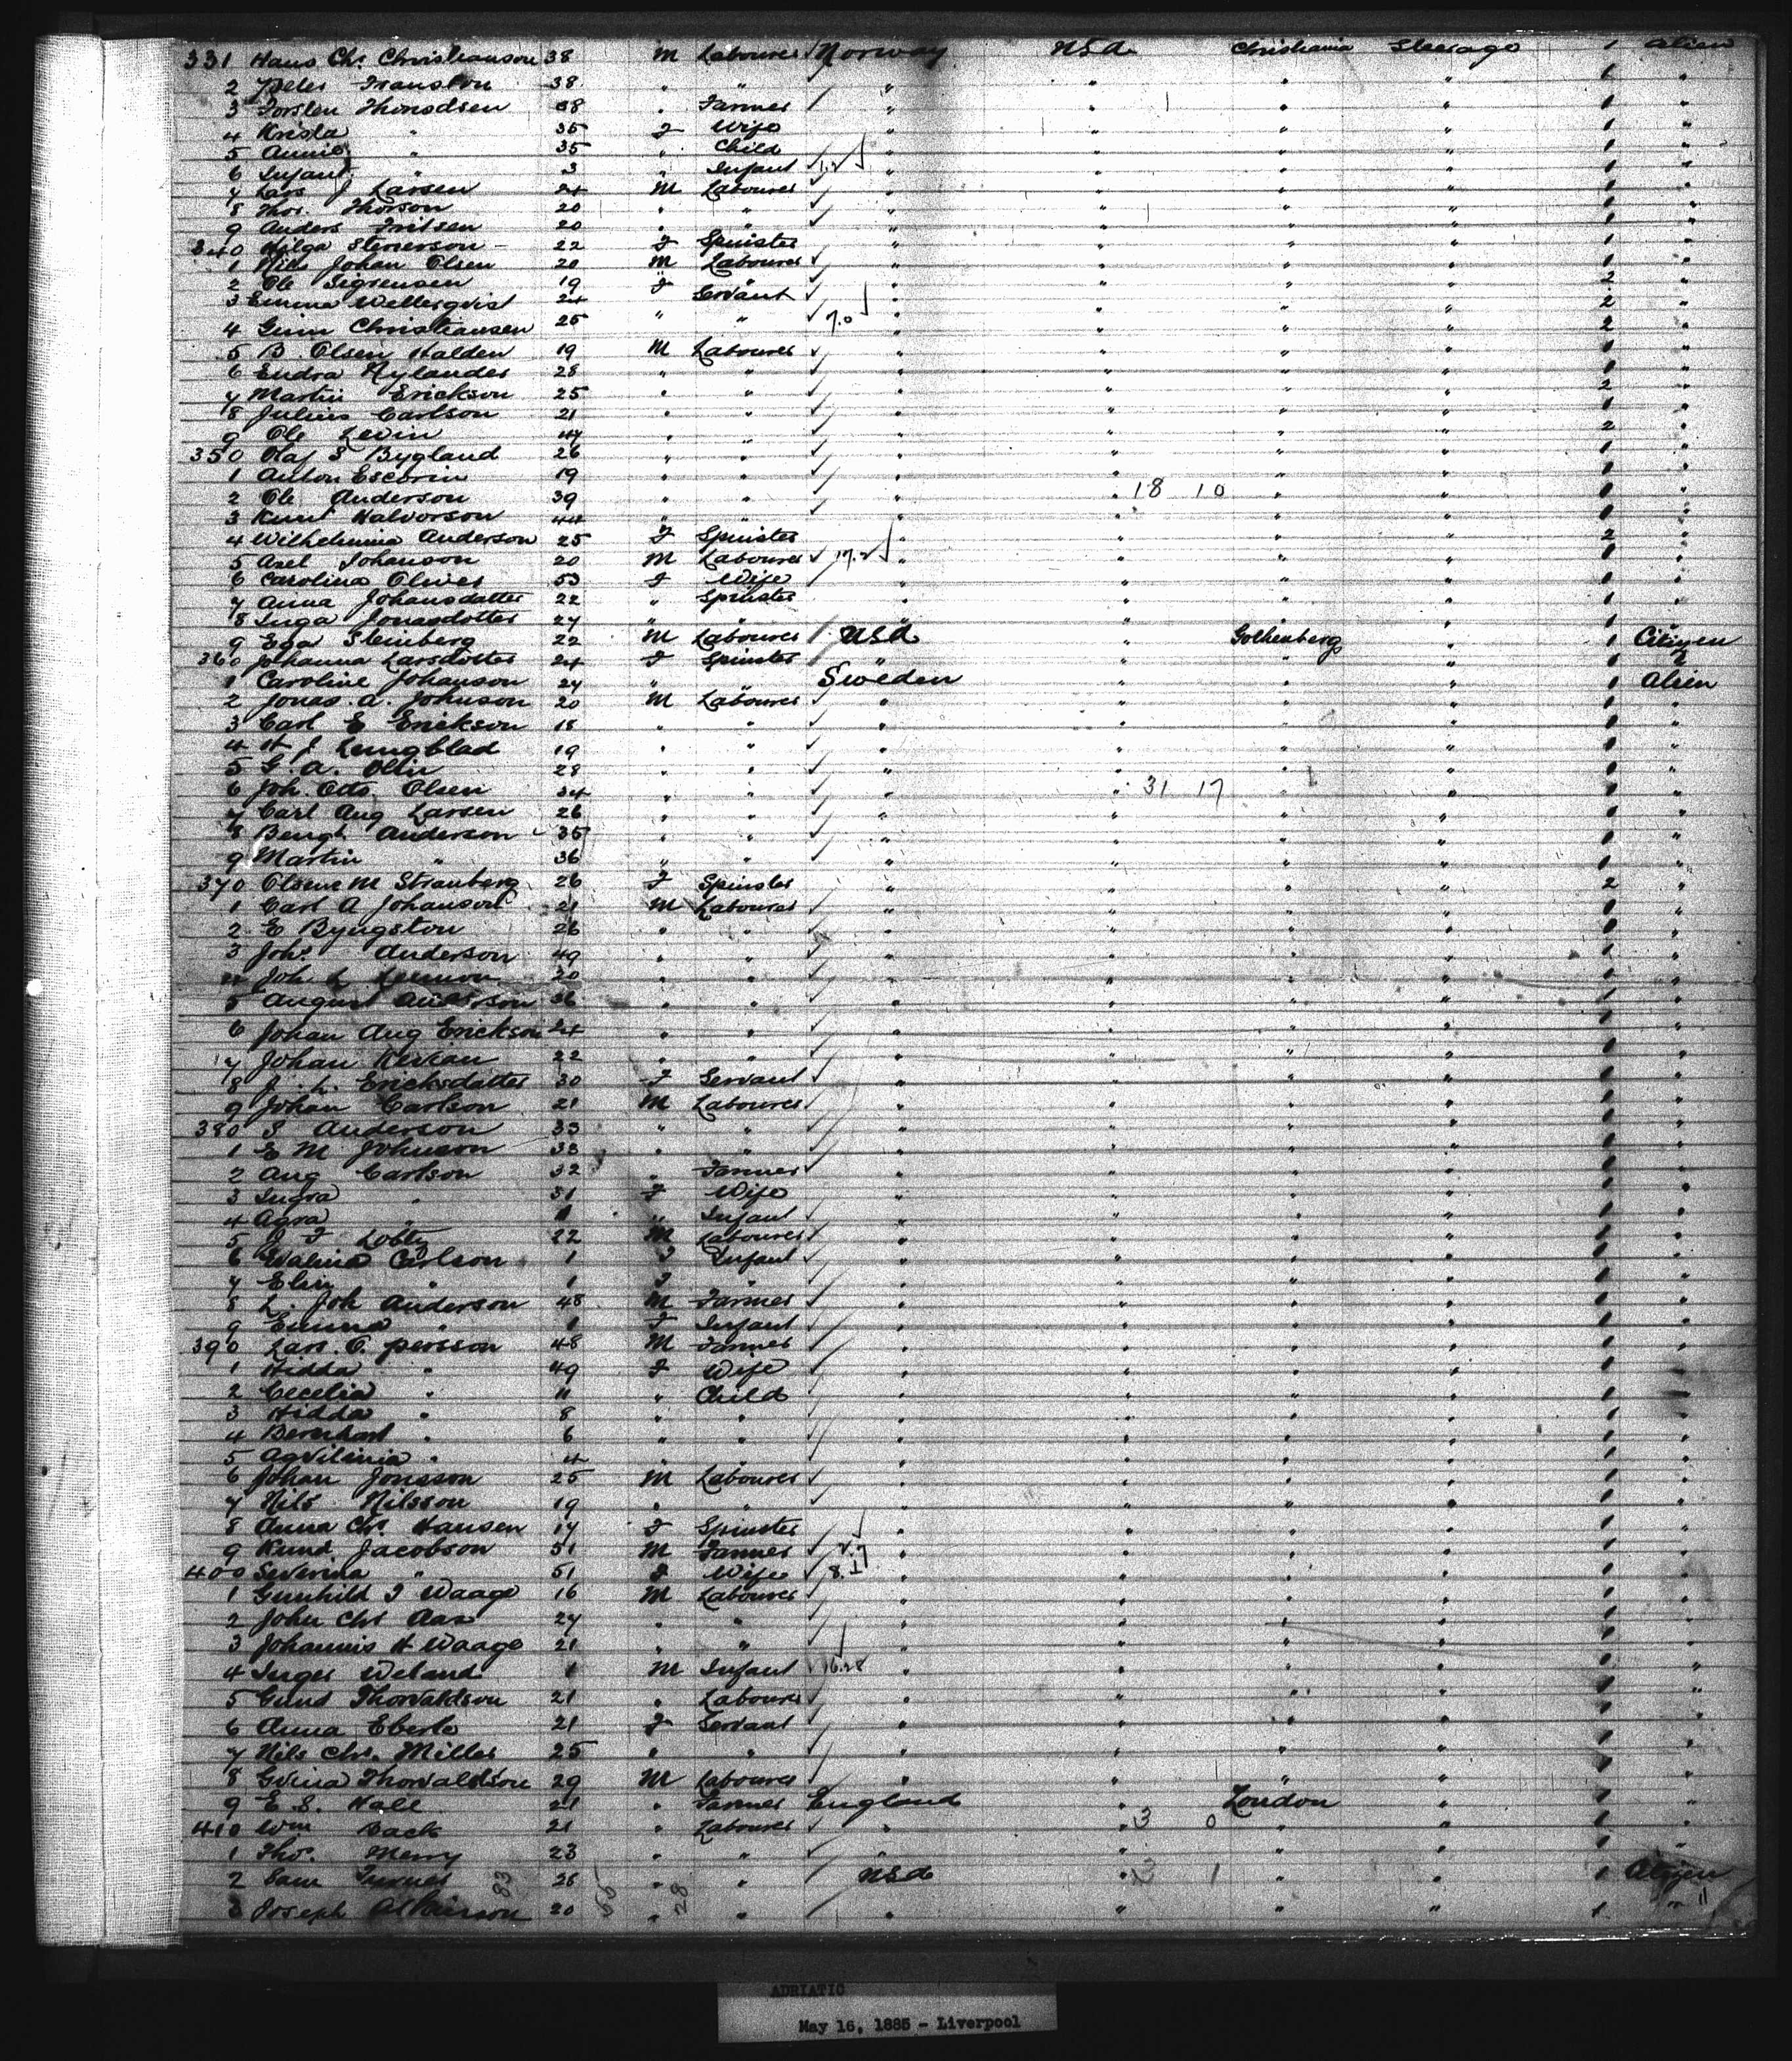 331 Hans Chr. Christianson 38 M Labourer Norway USA Christiania Steerage 1 Alien
2 Peter Franslon 38 " " " " " " 1 "
3 Torsten Thorsdsen 38 " Farmer " " " " 1 "
4 Krista " 35 F Wife " " " " 1 "
5 Annie " 35 " Child " " " " 1 "
6 Infant " 3 " Infant " " " " 1 "
7 Lars J Larsen 24 M Labourer " " " " 1 "
8 Thos. Thorson 20 " " " " " " 1 "
9 Anders Fritsen 20 " " " " " " 1 "
340 Hilga Stenerson 22 F Spinster " " " " 1 "
1 Johan Olsen 20 M Labourer " " " " 1 "
2 Ole Sigvensen 19 F " " " " 2 "
3 Emma Wellerqvist 24 Servant " " " " 2 "
4 Christiansen 25 " " 7.0 " " " " 2 "
5 B. Olsen Halden 19 M Labourer " " " " 1 "
6 Endra Nylander 28 " " " " " " 1 "
7 Martin Erickson 25 " " " " " " 2 "
8 Julius Carlson 21 " " " " " " 1 "
9 Ole Levin 47 " " " " " " 2 "
350 Olaf S Bygland 26 " " " " " " 1 "
1 Anton Escorin 19 " " " " " " 1 "
2 Ole Anderson 39 " " " " 18 10 " " 1 "
3 Knut Halvorson 44 " " " " " " 1 "
4 Wilhelmina Anderson 25 F Spinster " " " " 2 "
5 Axel Johanson 20 M Labourer 17.2 " " " " 1 "
6 Carolina Oliver 53 F Wife " " " " 1 "
7 Anna Johansdatter 22 " Spinster " " " " 1 "
8 Inga Jonasdotter 27 " " " " " " 1 "
9 Ega Steinberg 22 M Labourer USA " Gothenberg " 1 Citizen
360 Johanna Larsdotter 24 F Spinster " " " " 1 "
1 Caroline Johanson 24 " " Sweden " " " 1 Alien
2 Jonas. A. Johnson 20 M Labourer " " " " 1 "
3 Carl E Erickson 18 " " " " " " 1 "
4 H J Lungblad 19 " " " " " " 1 "
5 G. A. Olin 28 " " " " " " 1 "
6 Joh. Otto Olsen 34 " " " " 31 17 " " 1 "
7 Carl Aug Larsen 26 " " " " " " 1 "
8 Bengt Anderson 35 " " " " " " 1 "
9 Martin " 36 " " " " " " 1 "
370 M Stranberg 26 F Spinster " " " " 2 "
1 Carl A Johanson 21 M Labourer " " " " 1 "
2 E Byngston 26 " " " " " " 1 "
3 Joh. Anderson 49 " " " " " " 1 "
4 Joh. L. 20 " " " " " " 1 "
5 August Anderson 36 " " " " " " 1 "
6 Johan Aug Erickson 24 " " " " " " 1 "
7 Johan 22 " " " " " " 1 "
8 Ericksdatter 30 F Servant " " " " 1 "
9 Johan Carlson 21 M Labourer " " " " 1 "
380 S Anderson 33 " " " " " " 1 "
1 E M Johnson 33 " " " " " " 1 "
2 Aug Carlson 32 " Farmer " " " " 1 "
3 Ingra " 31 F Wife " " " " 1 "
4 Agra " 1 " Infant " " " " 1 "
5 J F Lobty 22 M Labourer " " " " 1 "
6 Carlson 1 F Infant " " " " 1 "
7 Elin " 1 F " " " " " 1 "
8 L. Joh Anderson 48 M Farmer " " " " 1 "
9 Emma " 1 F Infant " " " " 1 "
390 Lars. O. persson 48 M Farmer " " " " 1 "
1 Hidda " 49 F Wife " " " " 1 "
2 Cecelia " 11 " Child " " " " 1 "
3 Hidda " 8 " " " " " " 1 "
4 Bernhart " 6 " " " " " " 1 "
5 Agvilinia " 4 " " " " " " 1 "
6 Johan Jonsson 25 M Labourer " " " " 1 "
7 Nils Nilsson 19 " " " " " " 1 "
8 Anna Chr. Hansen 17 F Spinster " " " " 1 "
9 Knud Jacobson 51 M Farmer " " " " 1 "
400 Severina " 51 F Wife " " " " 1 "
1 Gunhild I Waage 16 M Labourer " " " " 1 "
2 John Chr Aas 27 " " " " " " 1 "
3 Johannis H Waage 21 " " " " " " 1 "
4 Inger Weland 1 M Infant 16.28 " " " " 1 "
5 Gund Thorvaldson 21 " Labourer " " " " 1 "
6 Anna Eberle 21 F Servant " " " " 1 "
7 Nils Chr. Miller 25 " " " " " " 1 "
8 Thorvaldson 29 M Labourer " " " " 1 "
9 E. S. Hall 21 " Farmer England " London " 1 "
410 Wm Back 21 " Labourer " " 3 0 " " 1 "
1 Tho. Merry 23 " " " " " " 1 "
2 Sam Turner 26 " " USA " 3 1 " " 1 Citizen
3 Joseph Atkinson 20 " " " " " " 1 " 11
83 55 28
ADRIATIC
May 16, 1885 - Liverpool